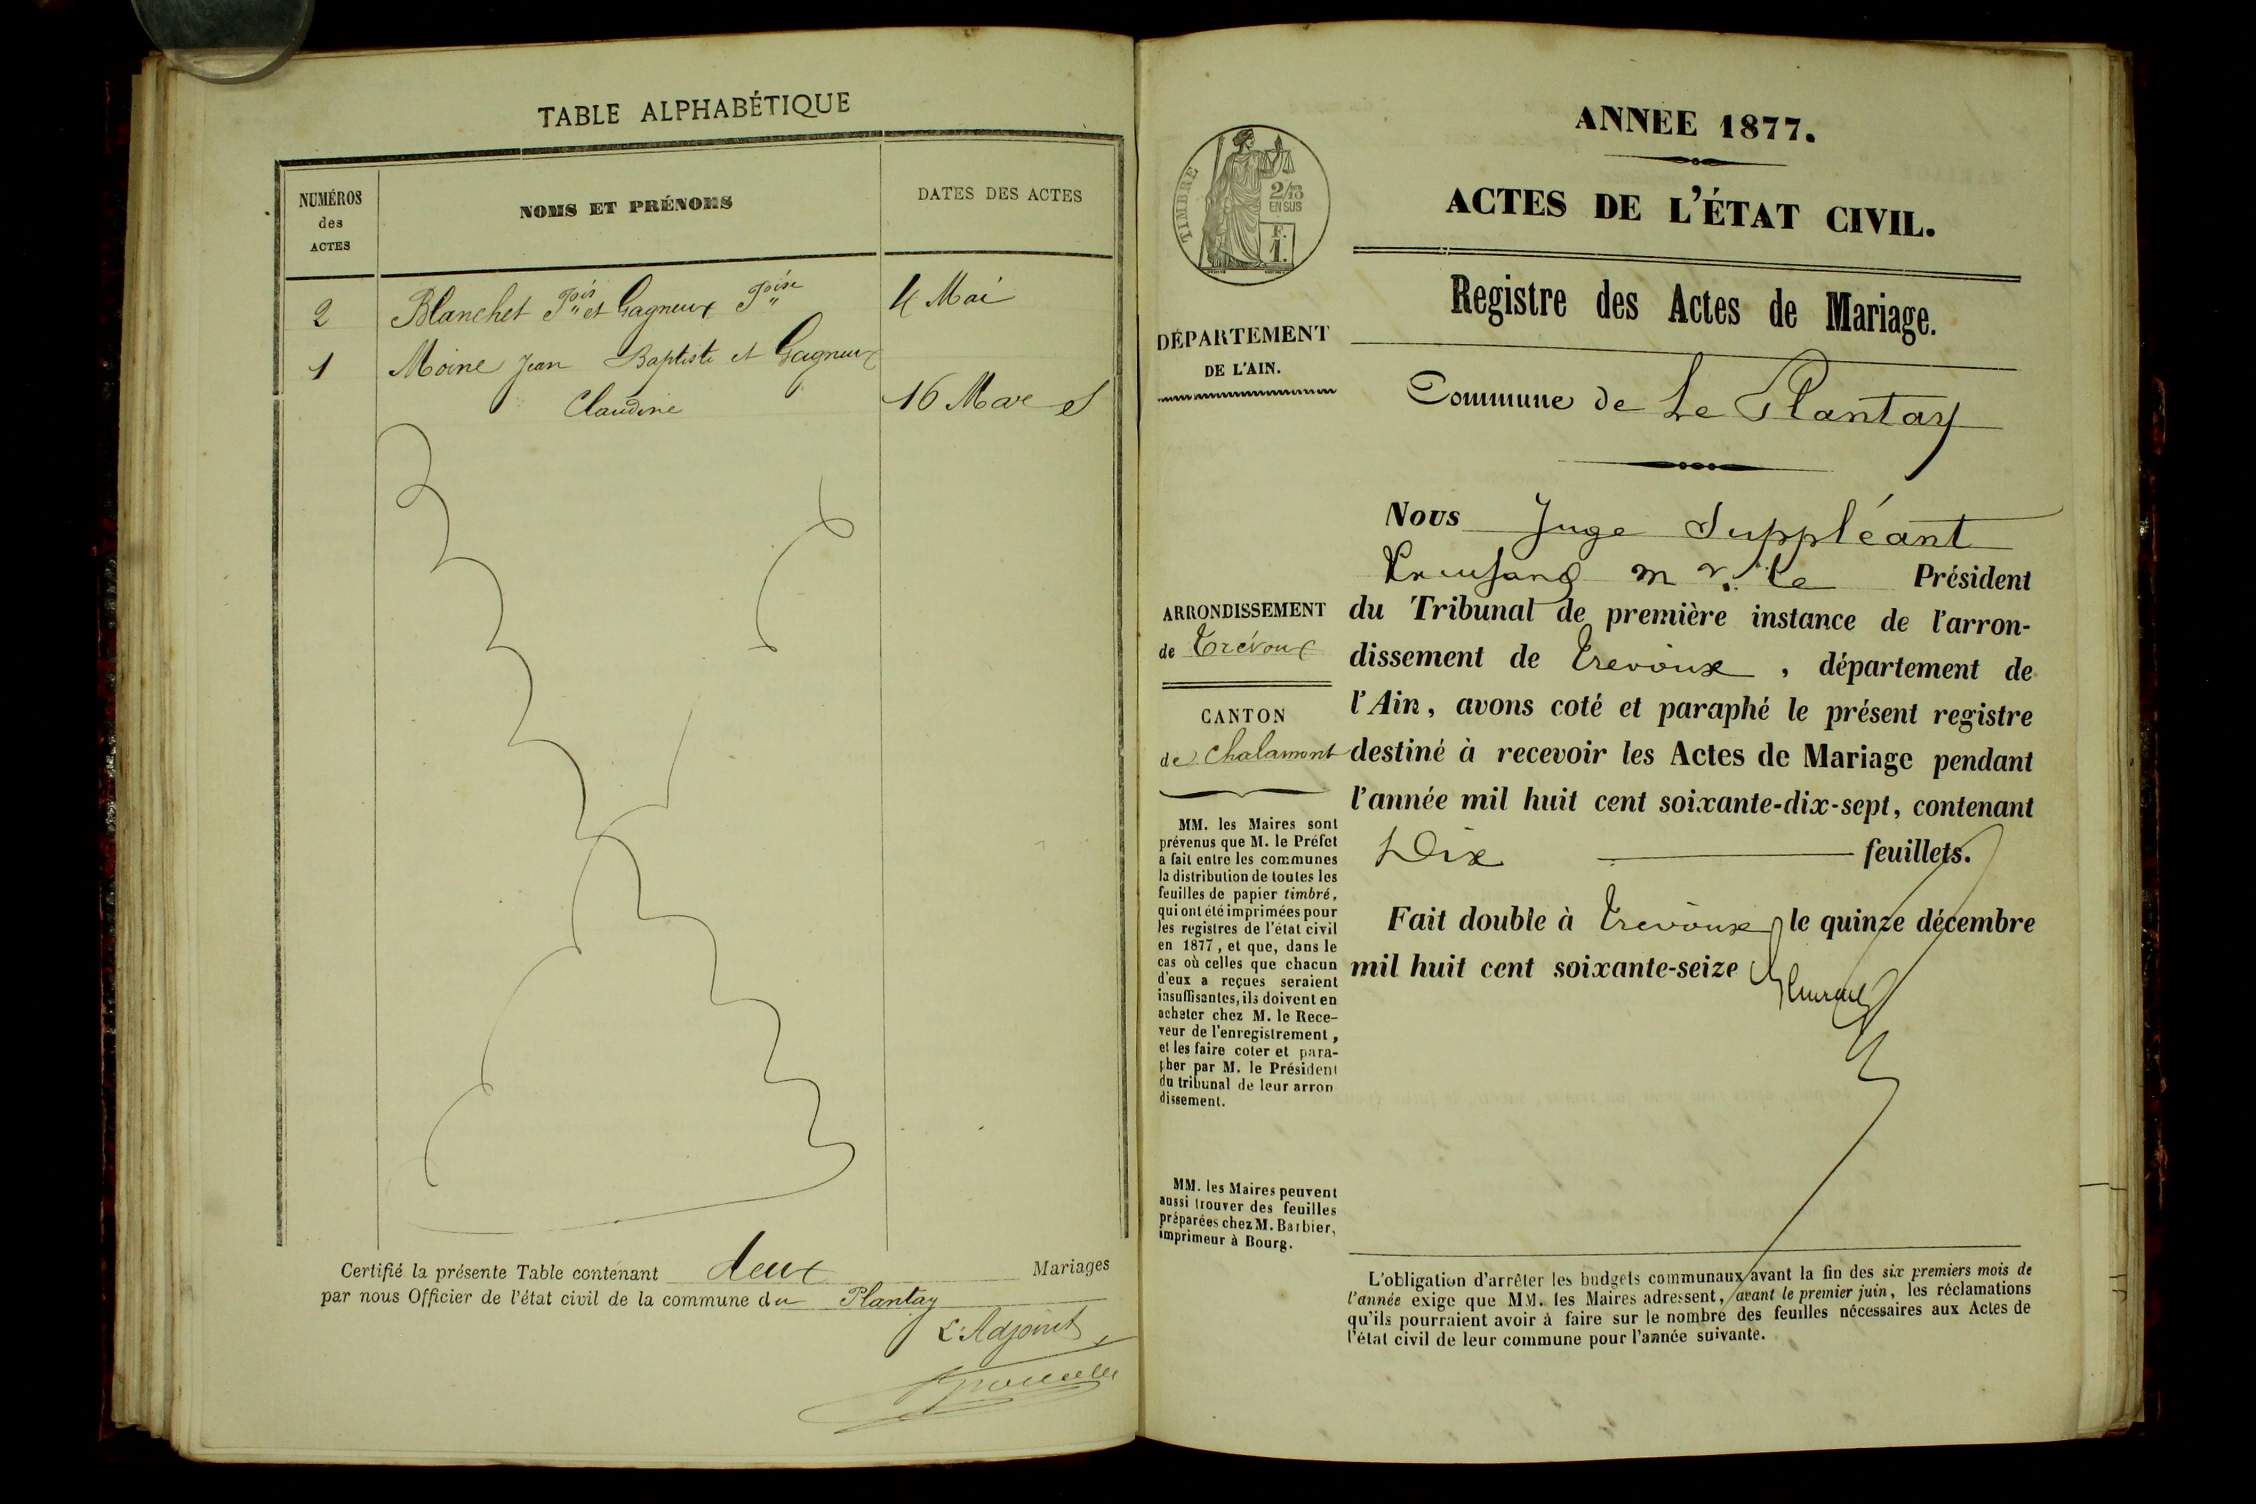 TABLE ALPHABÉTIQUE
NUMÉROS
des
ACTES
NOMS ET PRÉNOMS
DATES DES ACTES
2 Blanchet Fois et Gagneux Foise 4 Mai
1 Moine Jean Baptiste et Gagneux
Claudine 16 Mars
Certifié la présente Table contenant deux Mariages
par nous Officier de l'état civil de la commune du Plantay
L'Adjoint
ANNÉE 1877.
ACTES DE L'ÉTAT CIVIL.
TIMBRE
2/10
EN SUS
F.
1.
Registre des Actes de Mariage.
DÉPARTEMENT
DE L'AIN.
Commune de Le Plantay
Nous Juge Suppléant
M r. le Président
du Tribunal de première instance de l'arron-
dissement de Trevoux, département de
l'Ain, avons coté et paraphé le présent registre
destiné à recevoir les Actes de Mariage pendant
l'année mil huit cent soixante-dix-sept, contenant
Dix feuillets.
Fait double à Trevoux le quinze décembre
mil huit cent soixante-seize
ARRONDISSEMENT
de Trévoux
CANTON
de Chalamont
MM. les Maires sont
prévenus que M. le Préfet
a fait entre les communes
la distribution de toutes les
feuilles de papier timbré,
qui ont été imprimées pour
les registres de l'état civil
en 1877, et que, dans le
cas où celles que chacun
d'eux a reçues seraient
insuffisantes, ils doivent en
acheter chez M. le Rece-
veur de l'enregistrement,
et les faire coter et para-
pher par M. le Président
du tribunal de leur arron
dissement.
MM. les Maires peuvent
aussi trouver des feuilles
préparées chez M. Barbier,
imprimeur à Bourg.
L'obligation d'arrêter les budgets communaux avant la fin des six premiers mois de
l'année exige que MM. les Maires adressent, avant le premier juin, les réclamations
qu'ils pourraient avoir à faire sur le nombre des feuilles nécessaires aux Actes de
l'état civil de leur commune pour l'année suivante.